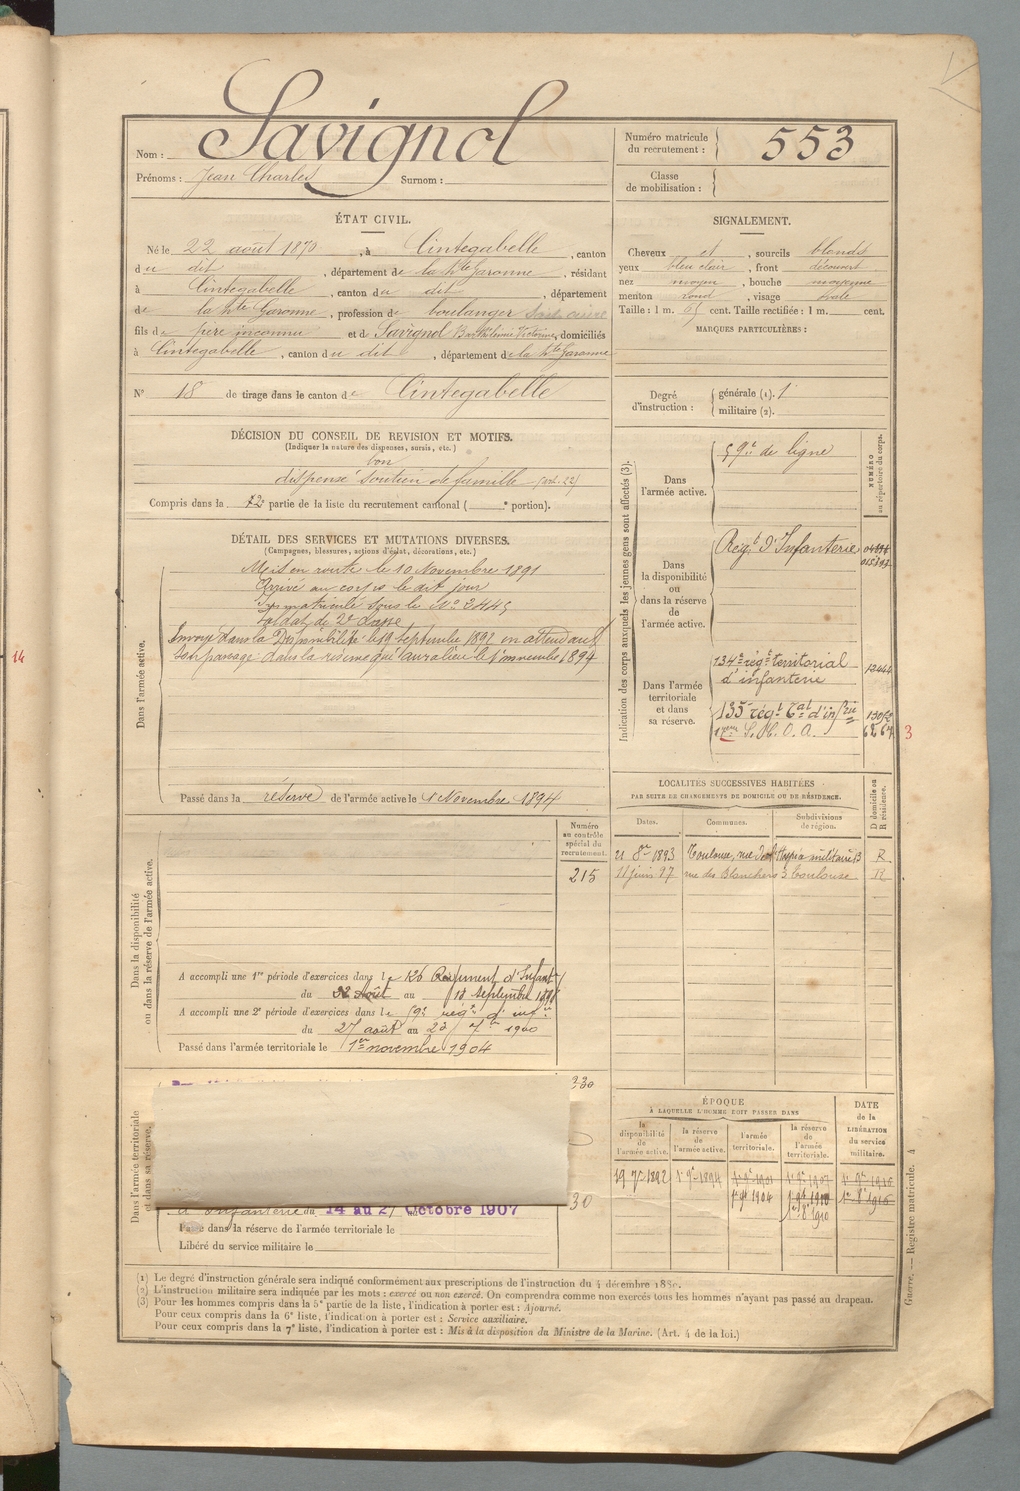 Savignol
Nom :
Prénoms : Jean Charles Surnom :
Numéro matricule du recrutement : 553
Classe de mobilisation :
ÉTAT CIVIL.
Né le 22 août 1870, à Cintegabelle, canton
du dit, département de la hte Garonne, résidant
à Cintegabelle, canton du dit, département
de la hte Garonne, profession de boulanger
fils de père inconnu et de Savignol Barthélemie Victorine, domiciliés
à Cintegabelle, canton du dit, département de la hte Garonne
N° 18 de tirage dans le canton de Cintegabelle
SIGNALEMENT.
Cheveux et, sourcils blonds
yeux bleu clair, front découvert
nez moyen, bouche moyenne
menton rond, visage ovale
Taille : 1 m. cent. Taille rectifiée : 1 m. cent.
MARQUES PARTICULIÈRES :
Degré d'instruction : générale (1). 1
militaire (2).
DÉCISION DU CONSEIL DE REVISION ET MOTIFS.
(Indiquer la nature des dispenses, sursis, etc.)
bon
dispensé soutien de famille (art. 22)
Compris dans la 2e partie de la liste du recrutement cantonal ( e portion).
DÉTAIL DES SERVICES ET MUTATIONS DIVERSES.
(Campagnes, blessures, actions d'éclat, décorations, etc.)
Dans l'armée active.
Mis en route le 10 Novembre 1891
Arrivé au corps le dit jour
Immatriculé sous le No 2445
Soldat de 2e classe
Envoyé dans la Disponibilité le 19 septembre 1892 en attendant
son passage dans la réserve qui aura lieu le 1er novembre 1894
Passé dans la réserve de l'armée active le 1 Novembre 1894
Indication des corps auxquels les jeunes gens sont affectés (3).
NUMÉRO au répertoire du corps.
Dans l'armée active.
59e de ligne
Dans la disponibilité ou dans la réserve de l'armée active.
Régt d'Infanterie
Dans l'armée territoriale et dans sa réserve.
134e régt territorial
d'infanterie
12444
135e régt Tal d'infrie
S. H. O. A.
3
14
LOCALITÉS SUCCESSIVES HABITÉES
PAR SUITE DE CHANGEMENTS DE DOMICILE OU DE RÉSIDENCE.
Dates. Communes. Subdivisions de région. D domicile ou R résidence.
21 8re 1893 Toulouse, rue militaire R
11 juin 97 rue des Blanchers 3 Toulouse R
Dans la disponibilité ou dans la réserve de l'armée active.
Numéro au contrôle spécial du recrutement.
215
A accompli une 1re période d'exercices dans le 126 Régiment d'Infant
du 22 Août au 18 septembre
A accompli une 2e période d'exercices dans le 59e régt d'infie
du 27 août au 23 7re 1900
Passé dans l'armée territoriale le 1er novembre 1904
Dans l'armée territoriale et dans sa réserve.
230
30
d'Infanterie du 14 au 27 Octobre 1907
Passé dans la réserve de l'armée territoriale le
Libéré du service militaire le
ÉPOQUE
À LAQUELLE L'HOMME DOIT PASSER DANS
la disponibilité de l'armée active. la réserve de l'armée active. l'armée territoriale. la réserve de l'armée territoriale. DATE DE LA LIBÉRATION du service militaire.
19 7re 1892 1er 9re 1894
1er 9re 1904
(1) Le degré d'instruction générale sera indiqué conformément aux prescriptions de l'instruction du 4 décembre 1889.
(2) L'instruction militaire sera indiquée par les mots : exercé ou non exercé. On comprendra comme non exercés tous les hommes n'ayant pas passé au drapeau.
(3) Pour les hommes compris dans la 5e partie de la liste, l'indication à porter est : Ajourné.
Pour ceux compris dans la 6e liste, l'indication à porter est : Service auxiliaire.
Pour ceux compris dans la 7e liste, l'indication à porter est : Mis à la disposition du Ministre de la Marine. (Art. 4 de la loi.)
Guerre. — Registre matricule. 4